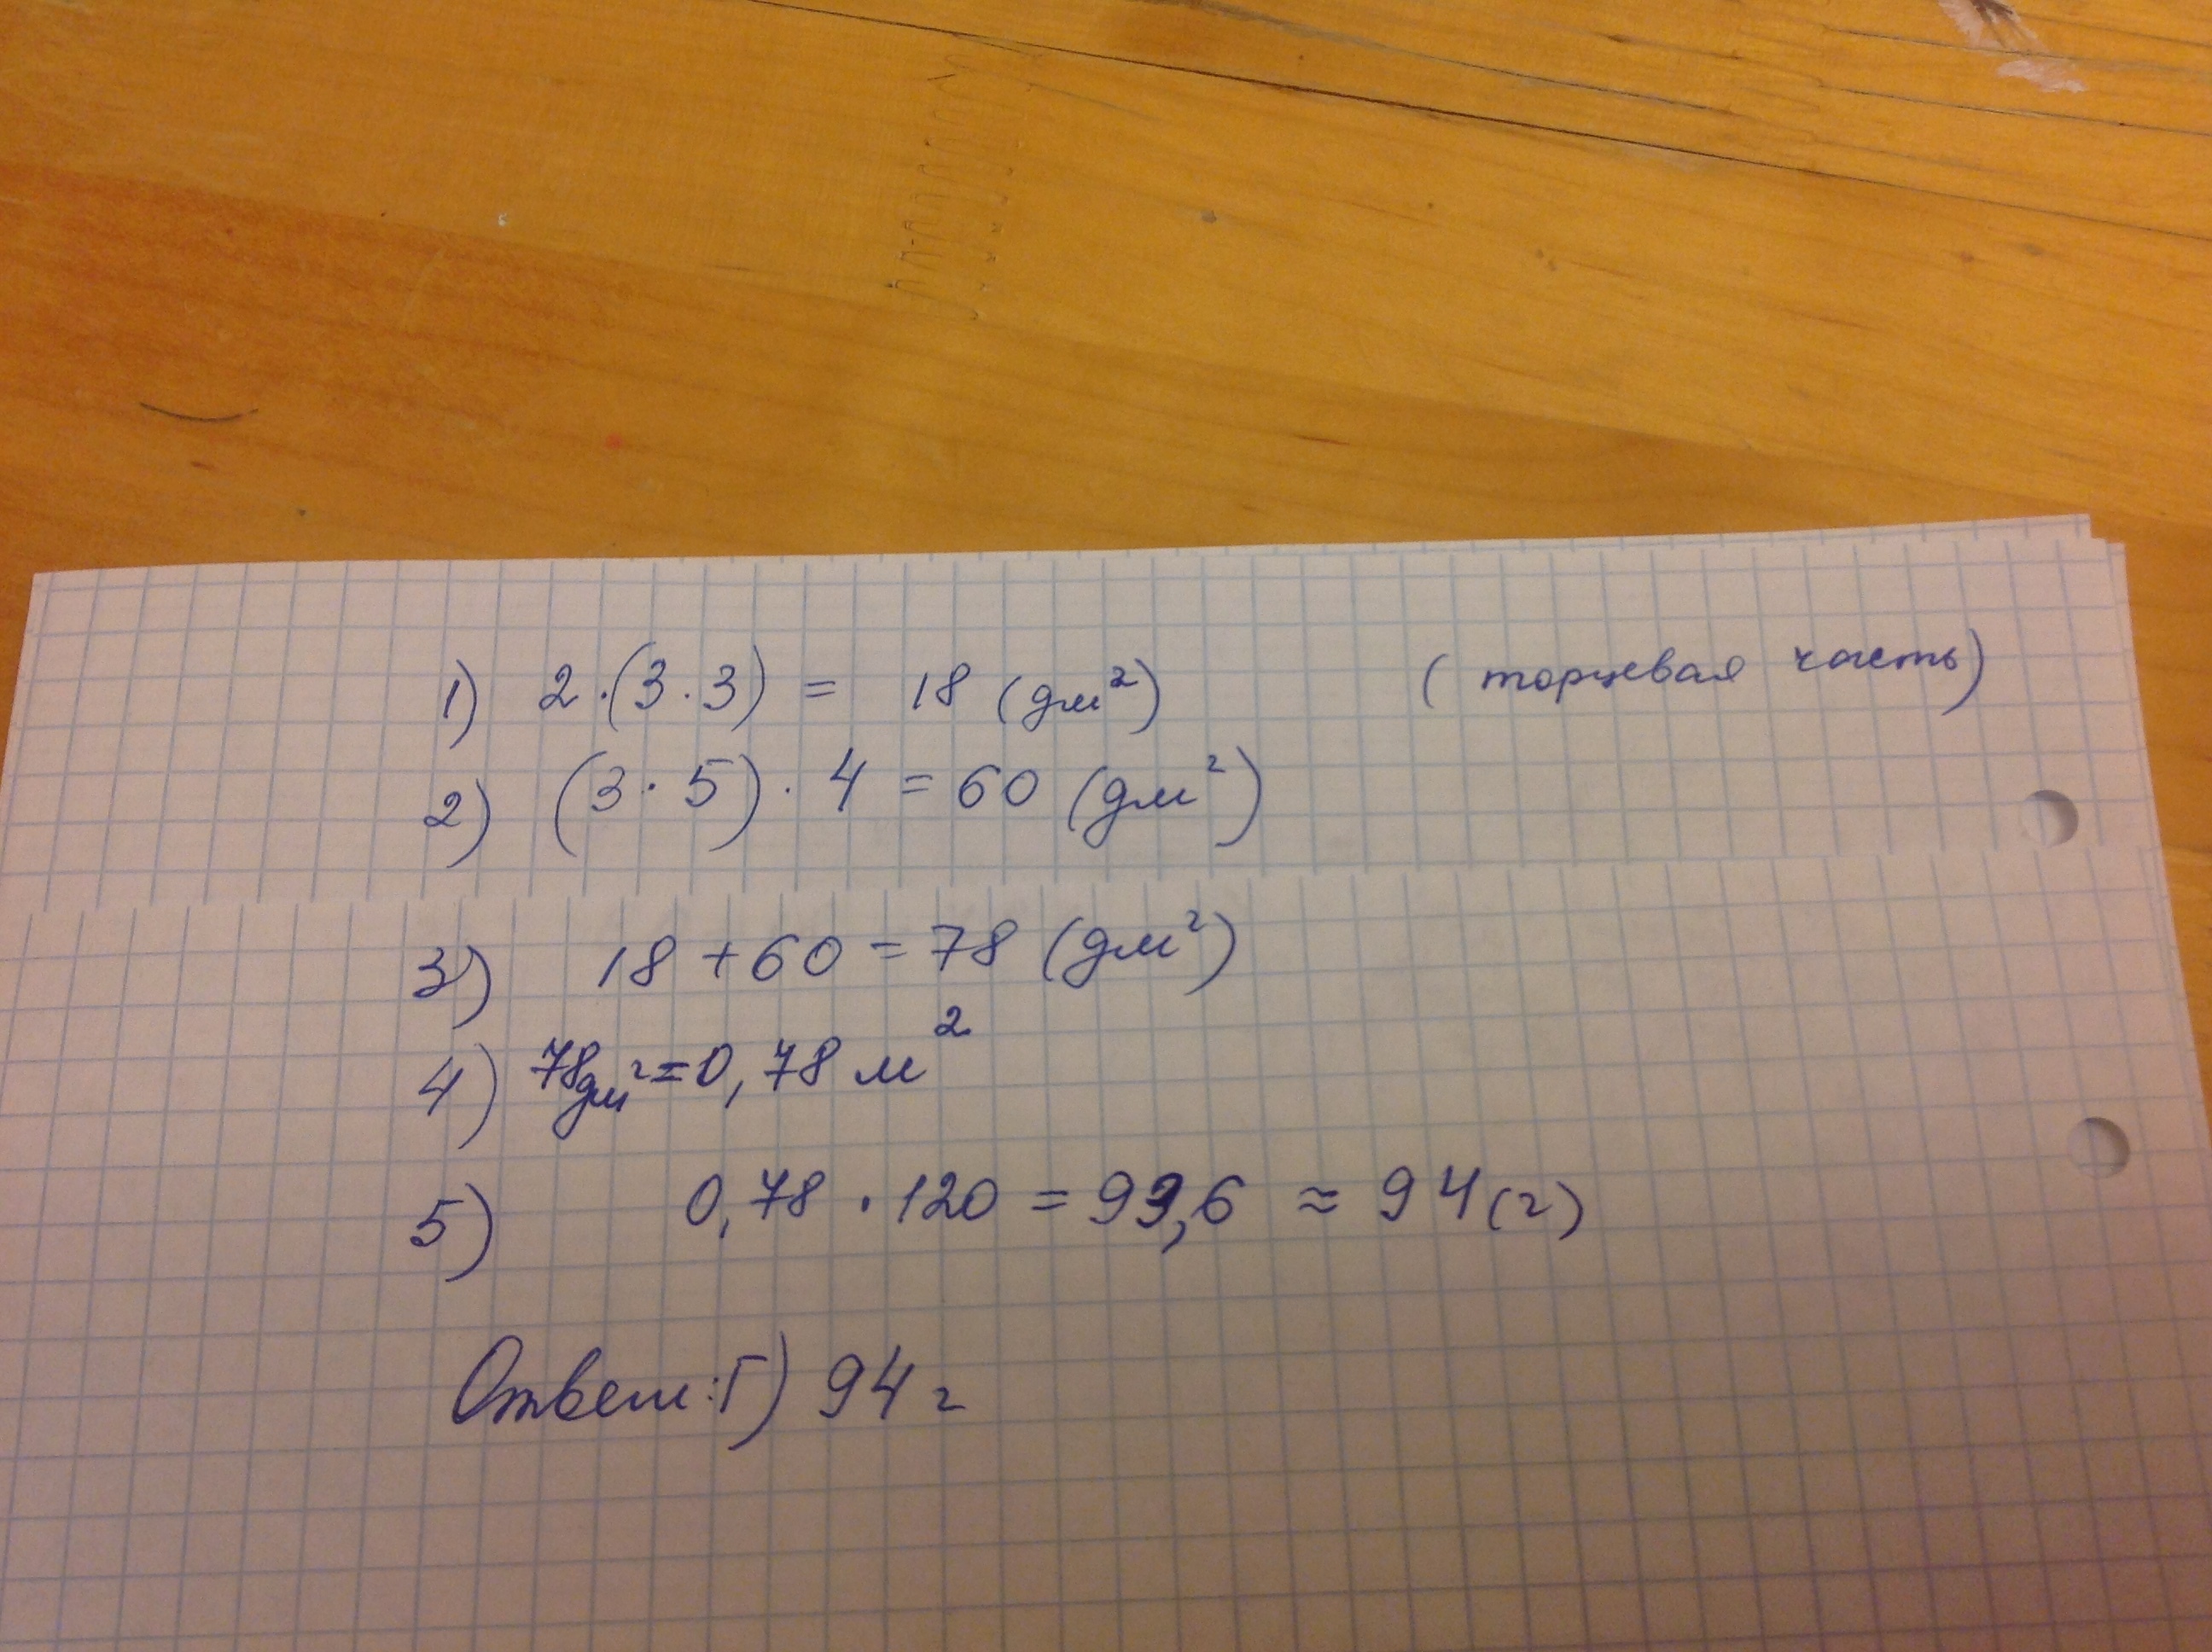 1) 2·(3·3) = 18 (дм²) (торцевая часть)
2) (3·5)·4 = 60 (дм²)
3) 18+60 = 78 (дм²)
4) 78дм²=0,78 м²
5) 0,78·120 = 93,6 ≈ 94(г)
Ответ: Г) 94 г